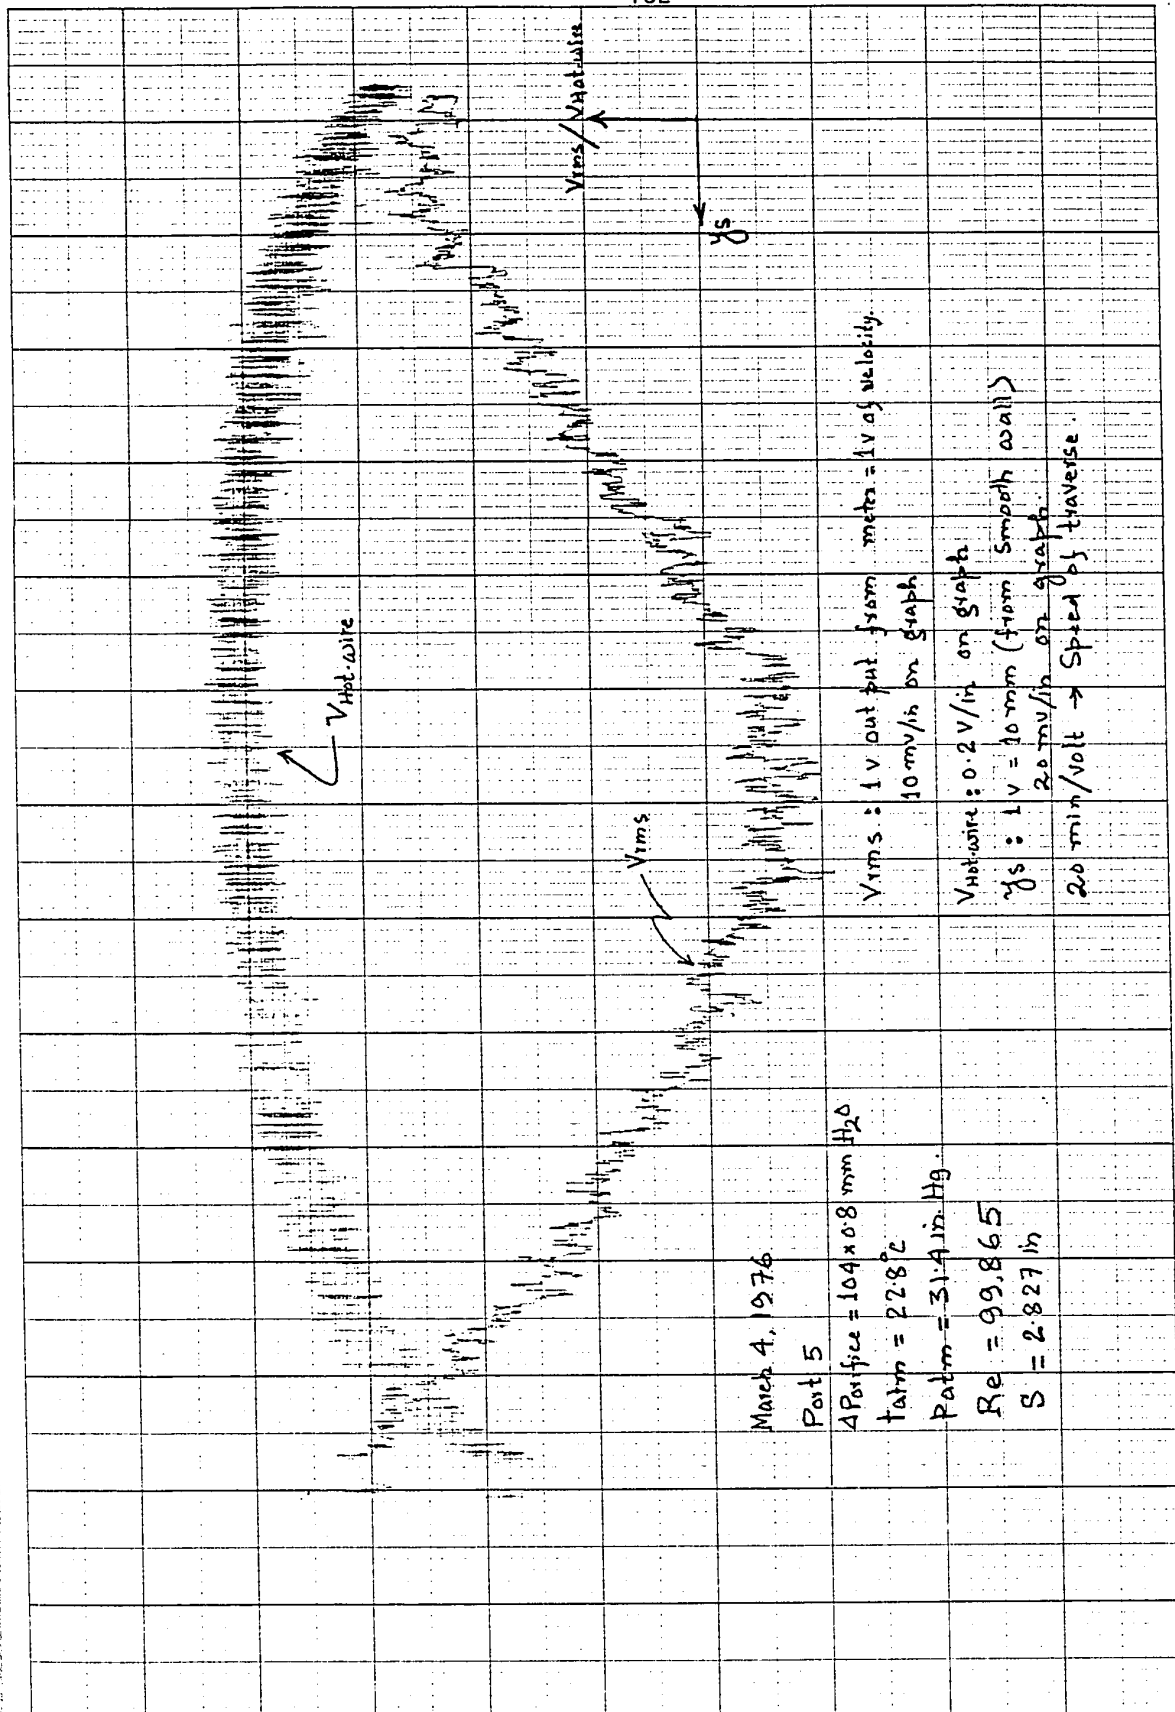 Vrms / VHot-wire
ys
VHot-wire
Vrms
Vrms : 1 v out put from meter = 1v of velocity.
10 mv/in on graph
VHot-wire : 0.2 V/in on graph
ys : 1 v = 10 mm (from smooth wall)
20 mv/in on graph.
20 min/volt → Speed of traverse.
March 4, 1976
Port 5
ΔPorifice = 104 x 0.8 mm H2O
tatm = 22.8°C
Patm = 31.4 in. Hg.
Re = 99,865
S = 2.827 in